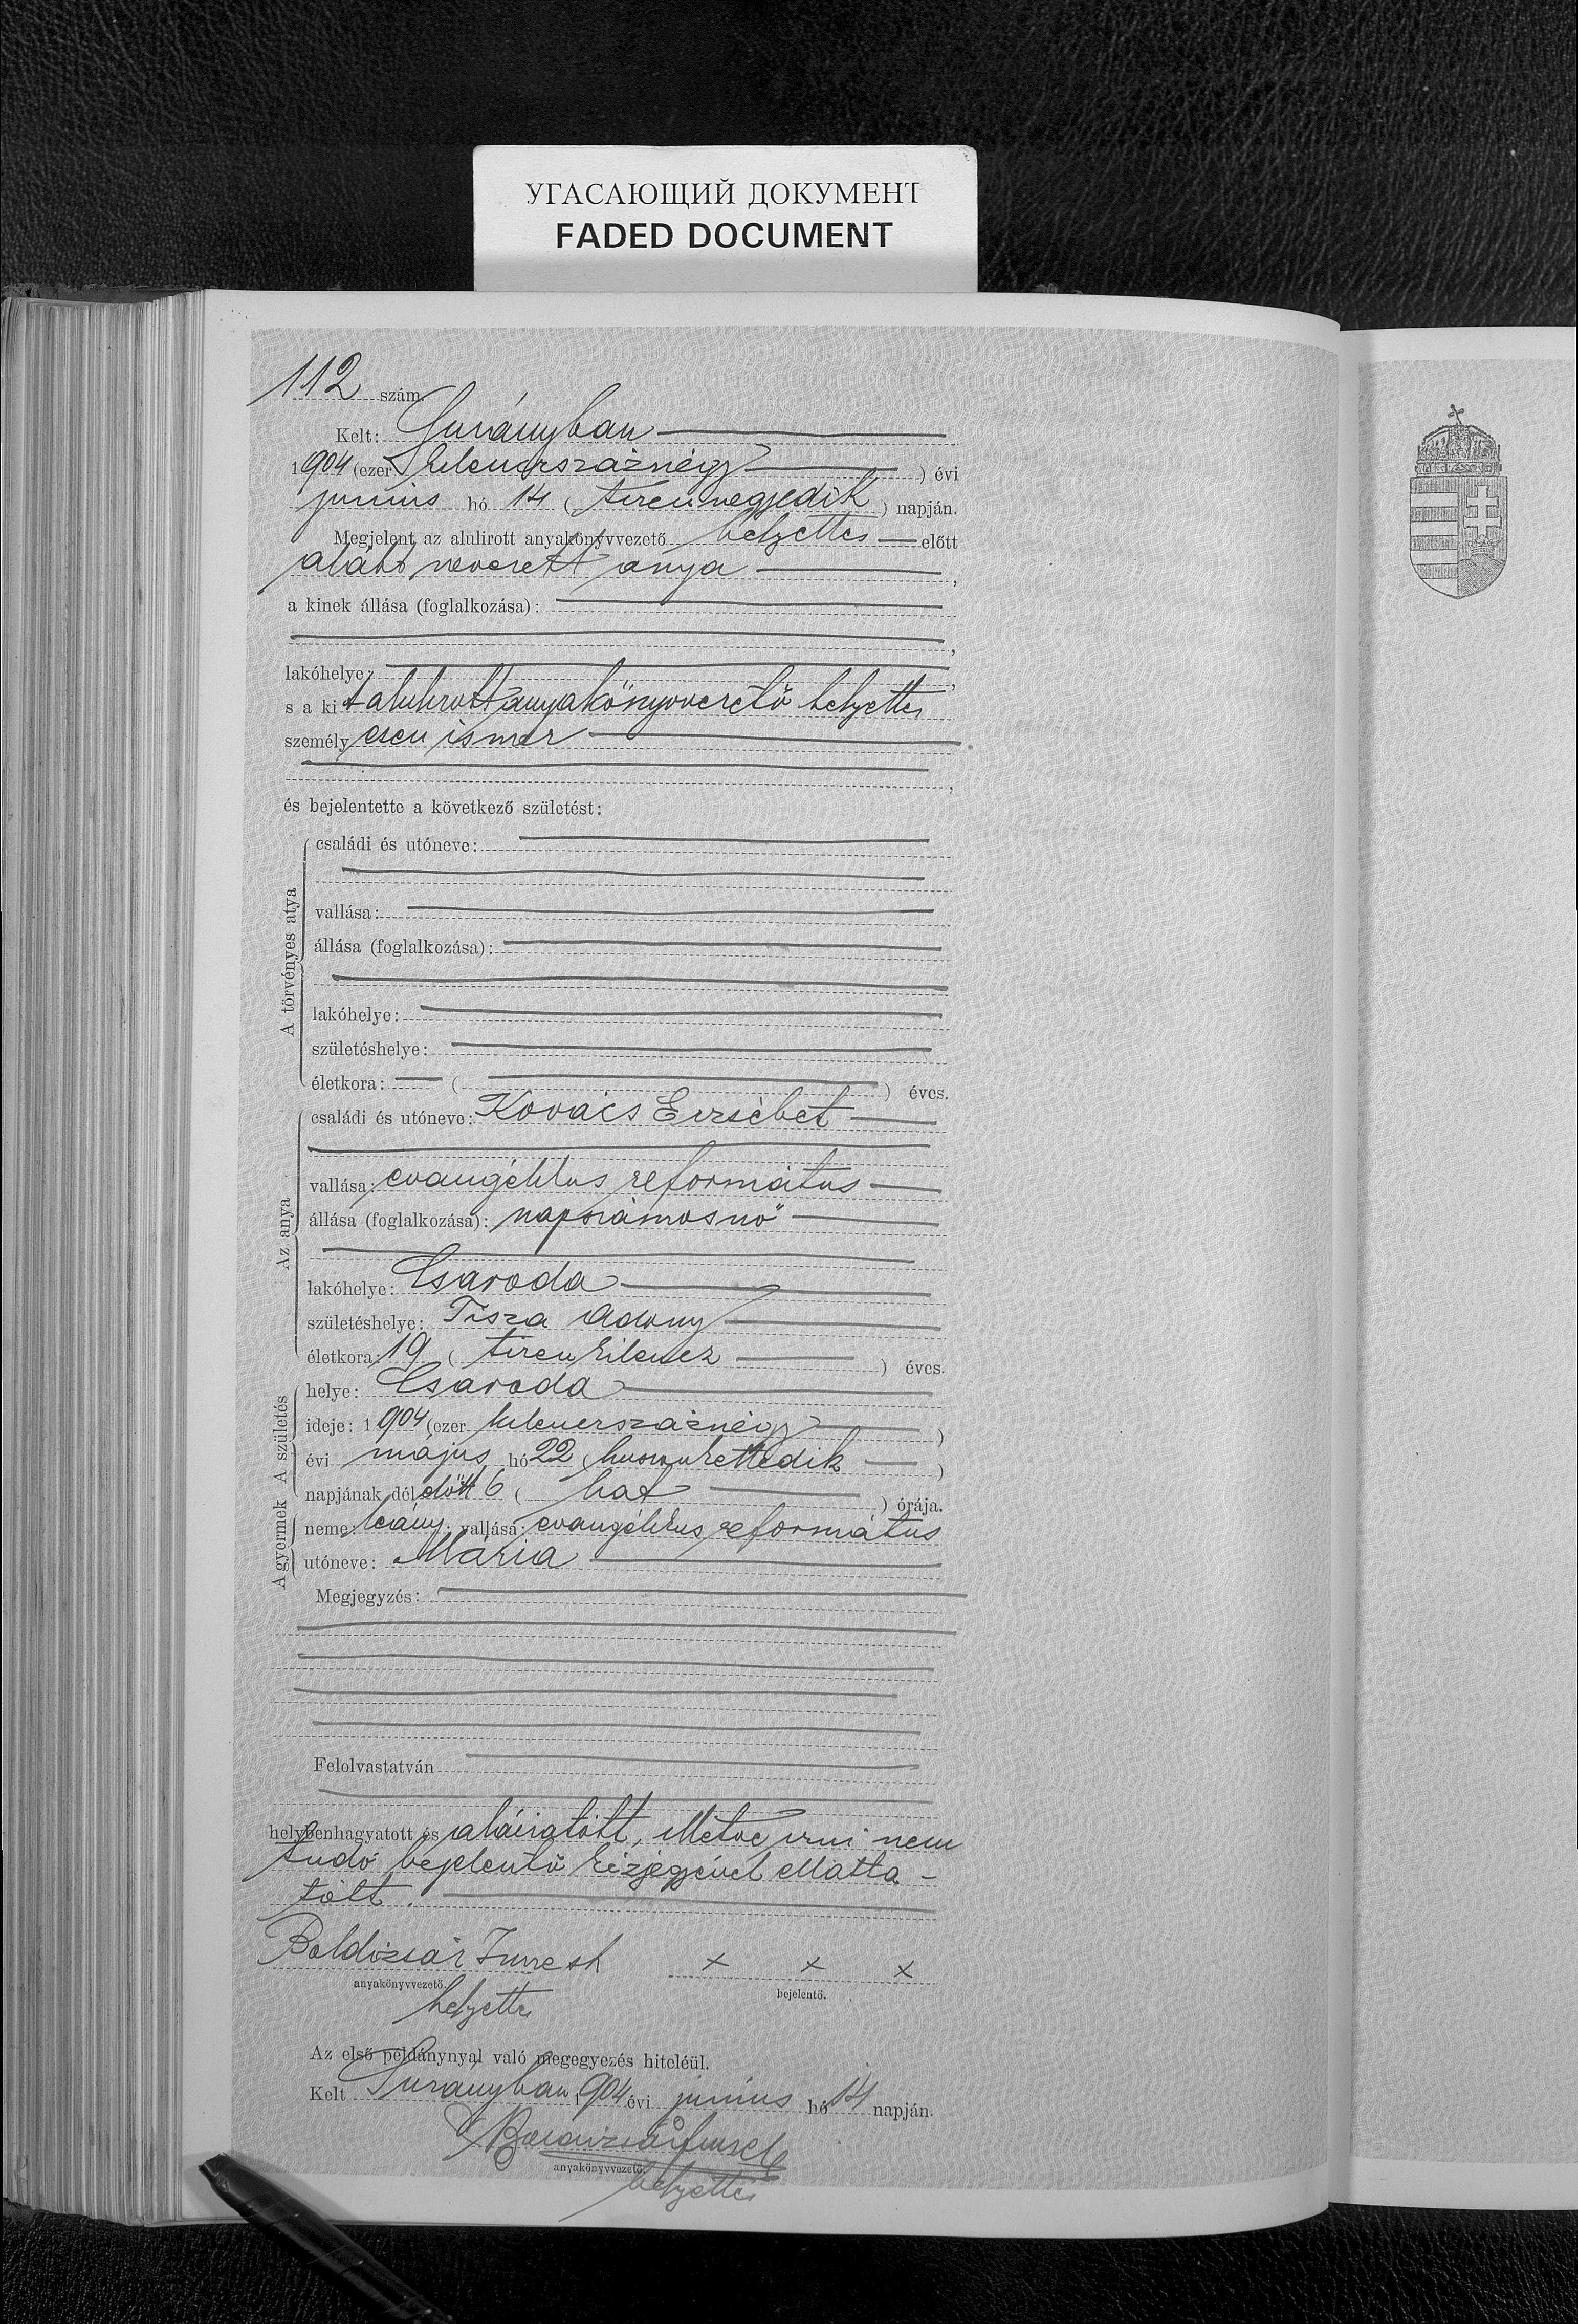 УГАСАЮЩИЙ ДОКУМЕНТ
FADED DOCUMENT
112 szám.
Kelt: Surányban
1904 (ezer kilenczszáznégy) évi
junius hó 14 (tizennegyedik) napján.
Megjelent az alulirott anyakönyvvezető helyettes előtt
alább nevezett anya,
a kinek állása (foglalkozása):
lakóhelye:
s a kit alulirott anyakönyvvezető helyettes
személyesen ismer
és bejelentette a következő születést:
A törvényes atya
családi és utóneve:
vallása:
állása (foglalkozása):
lakóhelye:
születéshelye:
életkora: ( ) éves.
Az anya
családi és utóneve: Kovács Erzsébet
vallása: evangéliktus református
állása (foglalkozása): napszámosnő
lakóhelye: Csaroda
születéshelye: Tisza Adony
életkora: 19 (tizenkilencz) éves.
A születés
helye: Csaroda
ideje: 1904 (ezer kilenczszáznégy)
évi május hó 22 (huszonkettedik)
napjának délelőtt 6 (hat) órája.
A gyermek
neme: leány; vallása: evangéliktus református
utóneve: Mária
Megjegyzés:
Felolvastatván
helybenhagyatott és aláiratott, illetve irni nem
tudó bejelentő kézjegyével elláttá-
tott.
Boldizsár Imre sk x x x
anyakönyvvezető. bejelentő.
helyettes
Az első példánynyal való megegyezés hiteléül.
Kelt Surányban 1904 évi junius hó 14 napján.
Boldizsár Imre
anyakönyvvezető.
helyettes